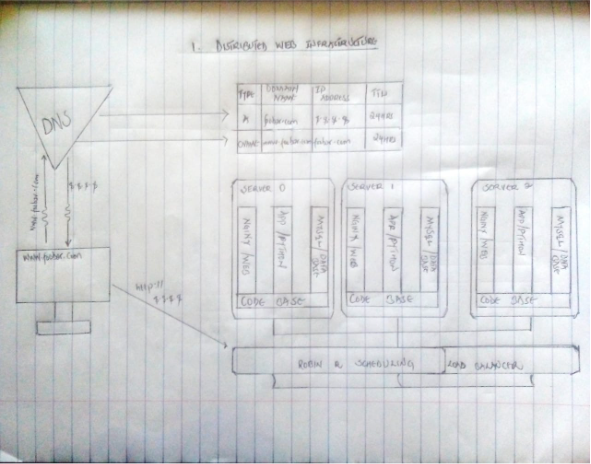 1. DISTRIBUTED WEB INFRASTRUCTURE
DNS
TYPE
DOMAIN NAME
IP ADDRESS
TTL
A
foobar.com
8.8.8.8
24HRS
CNAME
www.foobar.com
foobar.com
24HRS
www.foobar.com
8.8.8.8
www.foobar.com
http://
8.8.8.8
SERVER 0
NGINX / WEB
APP / PYTHON
MYSQL / DATA
BASE
CODE BASE
SERVER 1
NGINX / WEB
APP / PYTHON
MYSQL / DATA
BASE
CODE BASE
SERVER 2
NGINX / WEB
APP / PYTHON
MYSQL / DATA
BASE
CODE BASE
ROBIN R SCHEDULING
LOAD BALANCER